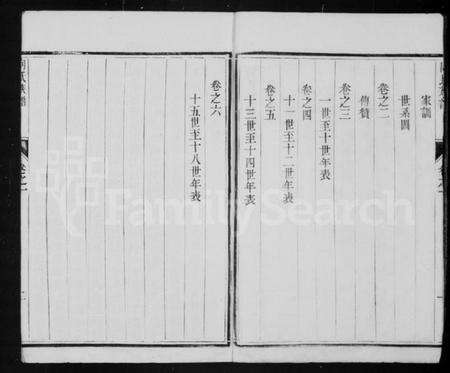 家訓
世系圖
卷之二
傳贊
卷之三
一世至十世年表
卷之四
十一世至十二世年表
卷之五
十三世至十四世年表
卷之六
十五世至十八世年表
卷之一
二
FamilySearch